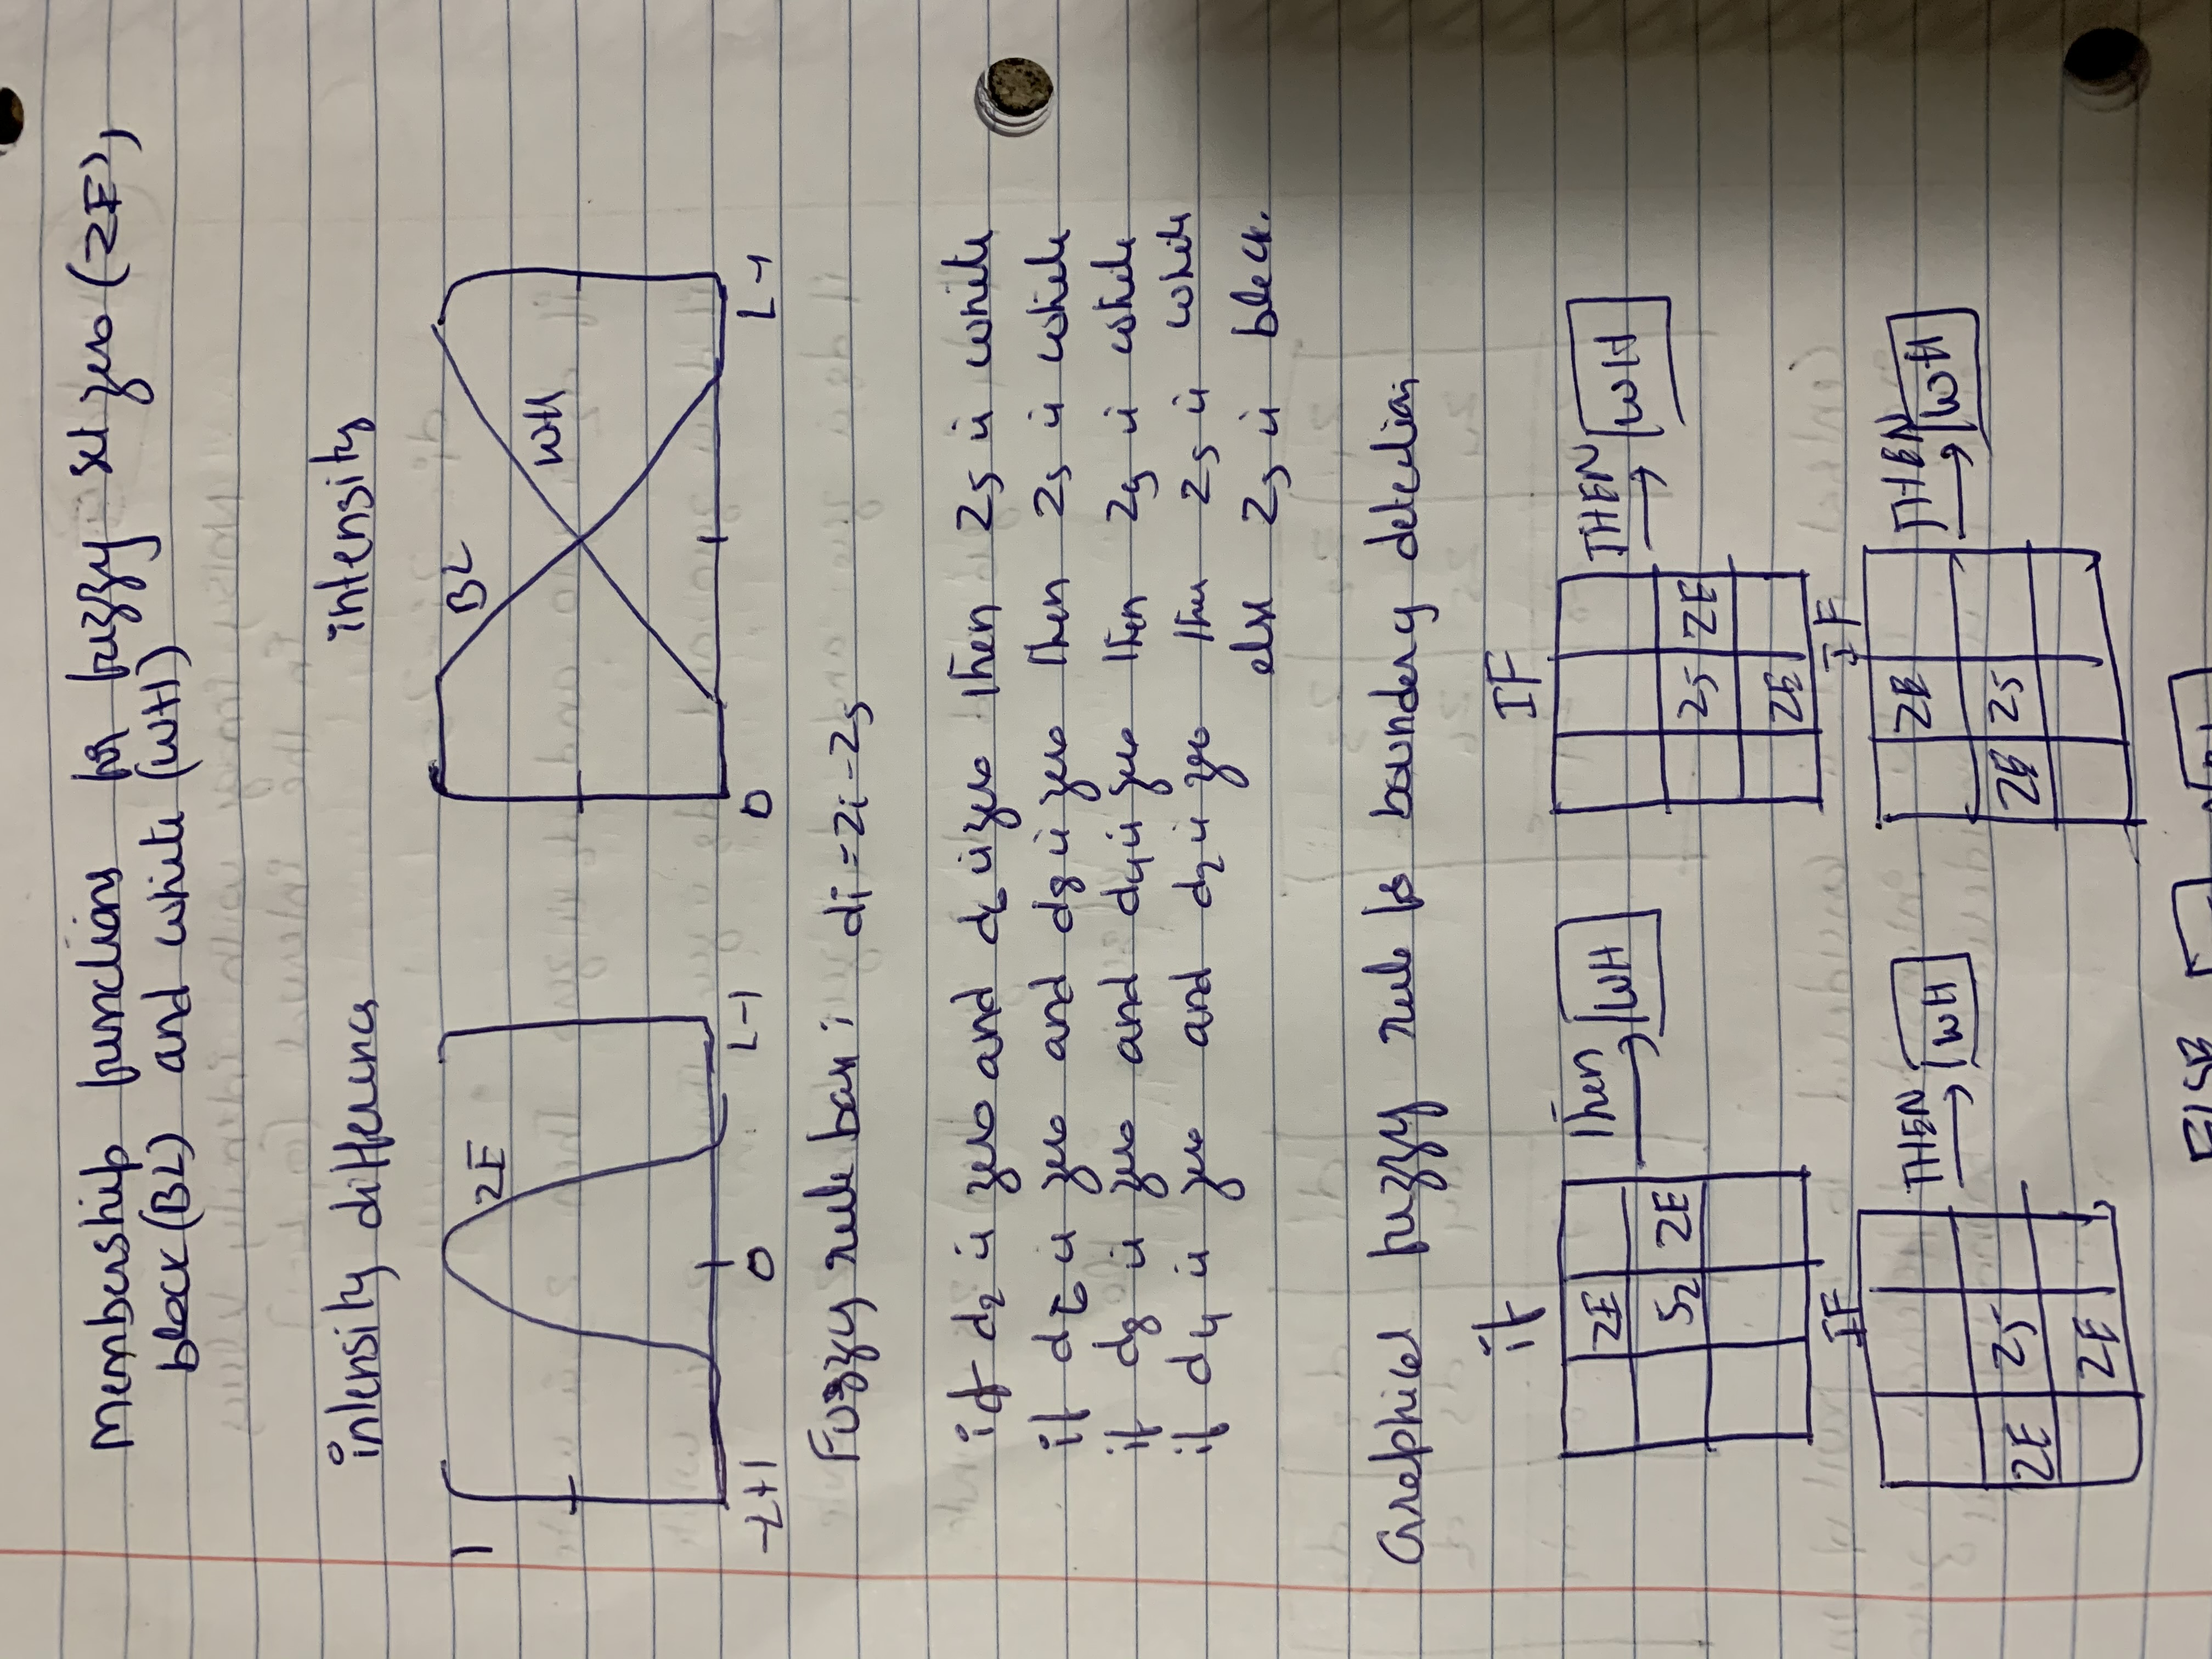 Membership functions for fuzzy set zero (ZE),
black (BL) and white (WH)
intensity difference
intensity
1
ZE
BL
WH
-L+1 0 L-1
0 L-1
Fuzzy rule base: di = zi - z5
if d2 is zero and d6 is zero then z5 is white
if d6 is zero and d8 is zero then z5 is white
if d8 is zero and d4 is zero then z5 is white
if d4 is zero and d2 is zero then z5 is white
else z5 is black.
Graphical fuzzy rule for boundary detection
if
ZE
5z ZE
Then
WH
IF
z5 ZE
ZE
THEN
WH
IF
ZE z5
ZE
THEN
WH
IF
ZE
ZE z5
THEN
WH
ELSE